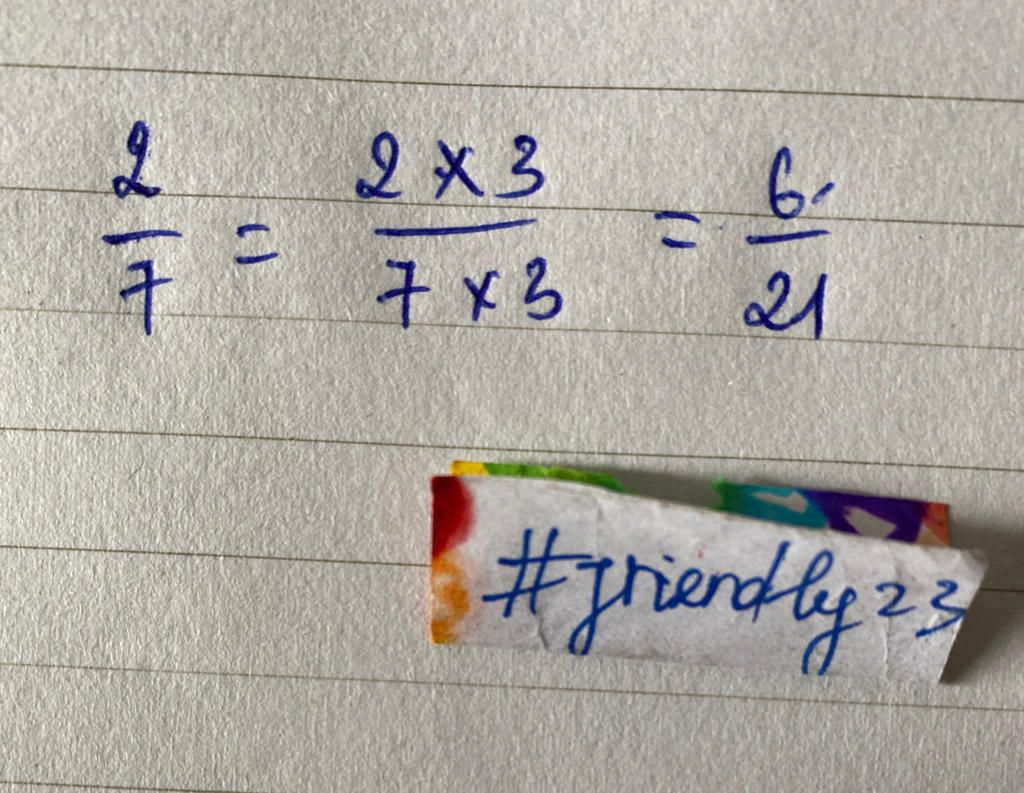 2/7 = 2 × 3/7 × 3 = 6/21
#friendly23